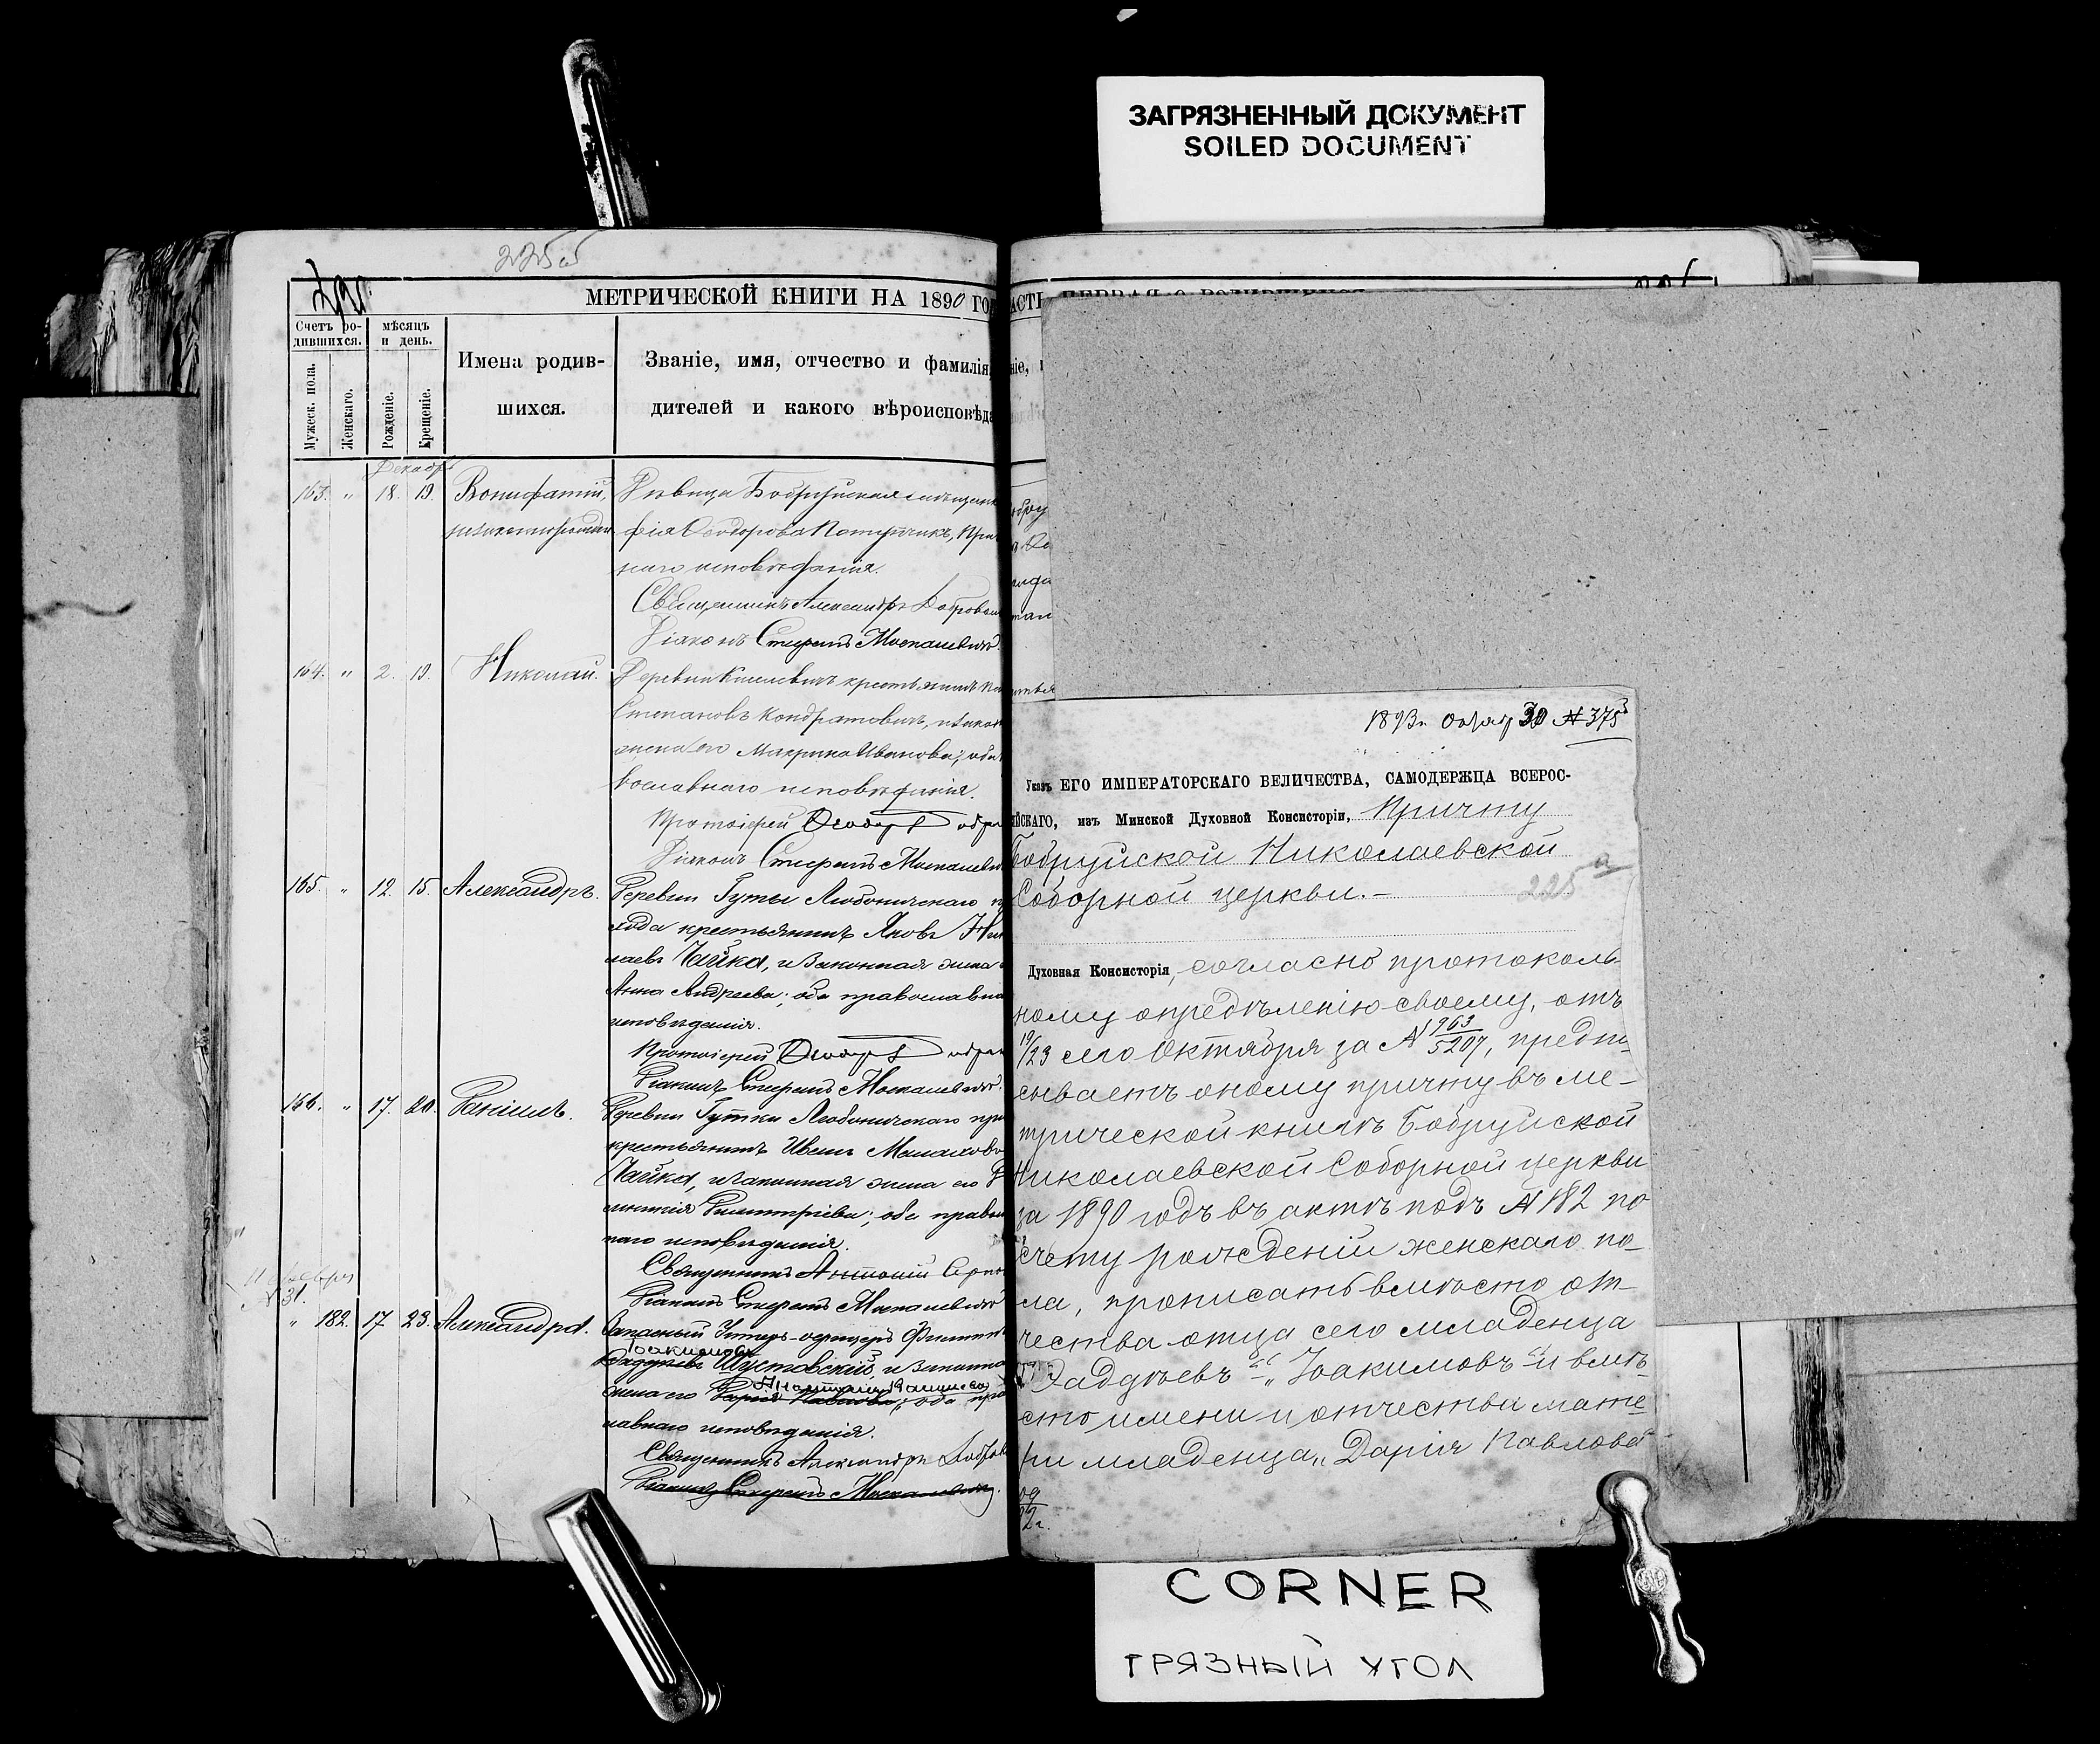 ЗАГРЯЗНЕННЫЙ ДОКУМЕНТ
SOILED DOCUMENT
225 б
МЕТРИЧЕСКОЙ КНИГИ НА 1890 ГО
Счетъ ро-
дившихся.
Мужеск. пола.
Женскаго.
мѣсяцъ
и день.
Рожденіе.
Крещеніе.
Имена родив-
шихся.
Званіе, имя, отчество и фамилія
дителей и какого вѣроисповѣда
Декабрь
163. " 18. 19. Вонифатій, Дѣвица Бобруйская мѣщанк
незаконнорожден фія Ѳеодорова Потупчикъ, пра
наго исповѣданія.
Священникъ Александръ Добровол
Діаконъ Стефанъ Москалевичъ.
164. " 2. 19. Николай. Деревни Киселевичъ крестьянинъ
Степановъ Кондратовичъ, и закон
жена его Макрина Иванова; оба
вославнаго исповѣданія.
Протоіерей
Діаконъ Стефанъ Москалеви
165. " 12. 15. Александръ. Деревни Гуты Любоничскаго п
хода крестьянинъ Яковъ Ник
лаевъ Чайка, и законная жена
Анна Андреева; оба православна
исповѣданія.
Протоіерей
Діаконъ Стефанъ Москалевичъ.
166. " 17. 20. Даніилъ. Деревни Гутки Любоничскаго при
крестьянинъ Иванъ
Чайка, и законная жена его
Димитріева; оба правос
наго исповѣданія.
Священникъ Антоній
Діаконъ Стефанъ Москалевичъ
№ 31.
" 182. 17 23. Александра. Запасный Унтеръ-офицеръ
Іоакимовъ
Фаддѣевъ Шустовскій, и законна
жена его Дарія Павлова; оба пра
лавнаго исповѣданія.
Священникъ Александръ Добров
Діаконъ Стефанъ Москалевичъ.
1893 г. Октяб 30 № 375
Указъ ЕГО ИМПЕРАТОРСКАГО ВЕЛИЧЕСТВА, САМОДЕРЖЦА ВСЕРОС-
ІЙСКАГО, изъ Минской Духовной Консисторіи, Причту
Бобруйской Николаевской
Соборной церкви.-
225 а
Духовная Консисторія, согласно протоколь-
ному опредѣленію своему, отъ
19/23 сего Октября за № 963/5207, предпи-
сываетъ оному причту въ ме-
трической книгѣ Бобруйской
Николаевской Соборной церкви
за 1890 годъ въ актѣ подъ № 182 по
счету рожденій женскаго по-
ла, прописать вмѣсто от-
чества отца сего младенца
„Фаддѣевъ" – „Іоакимовъ" и вмѣ-
сто имени и отчества мате-
ри младенца „Дарія Павлова
CORNER
ГРЯЗНЫЙ УГОЛ